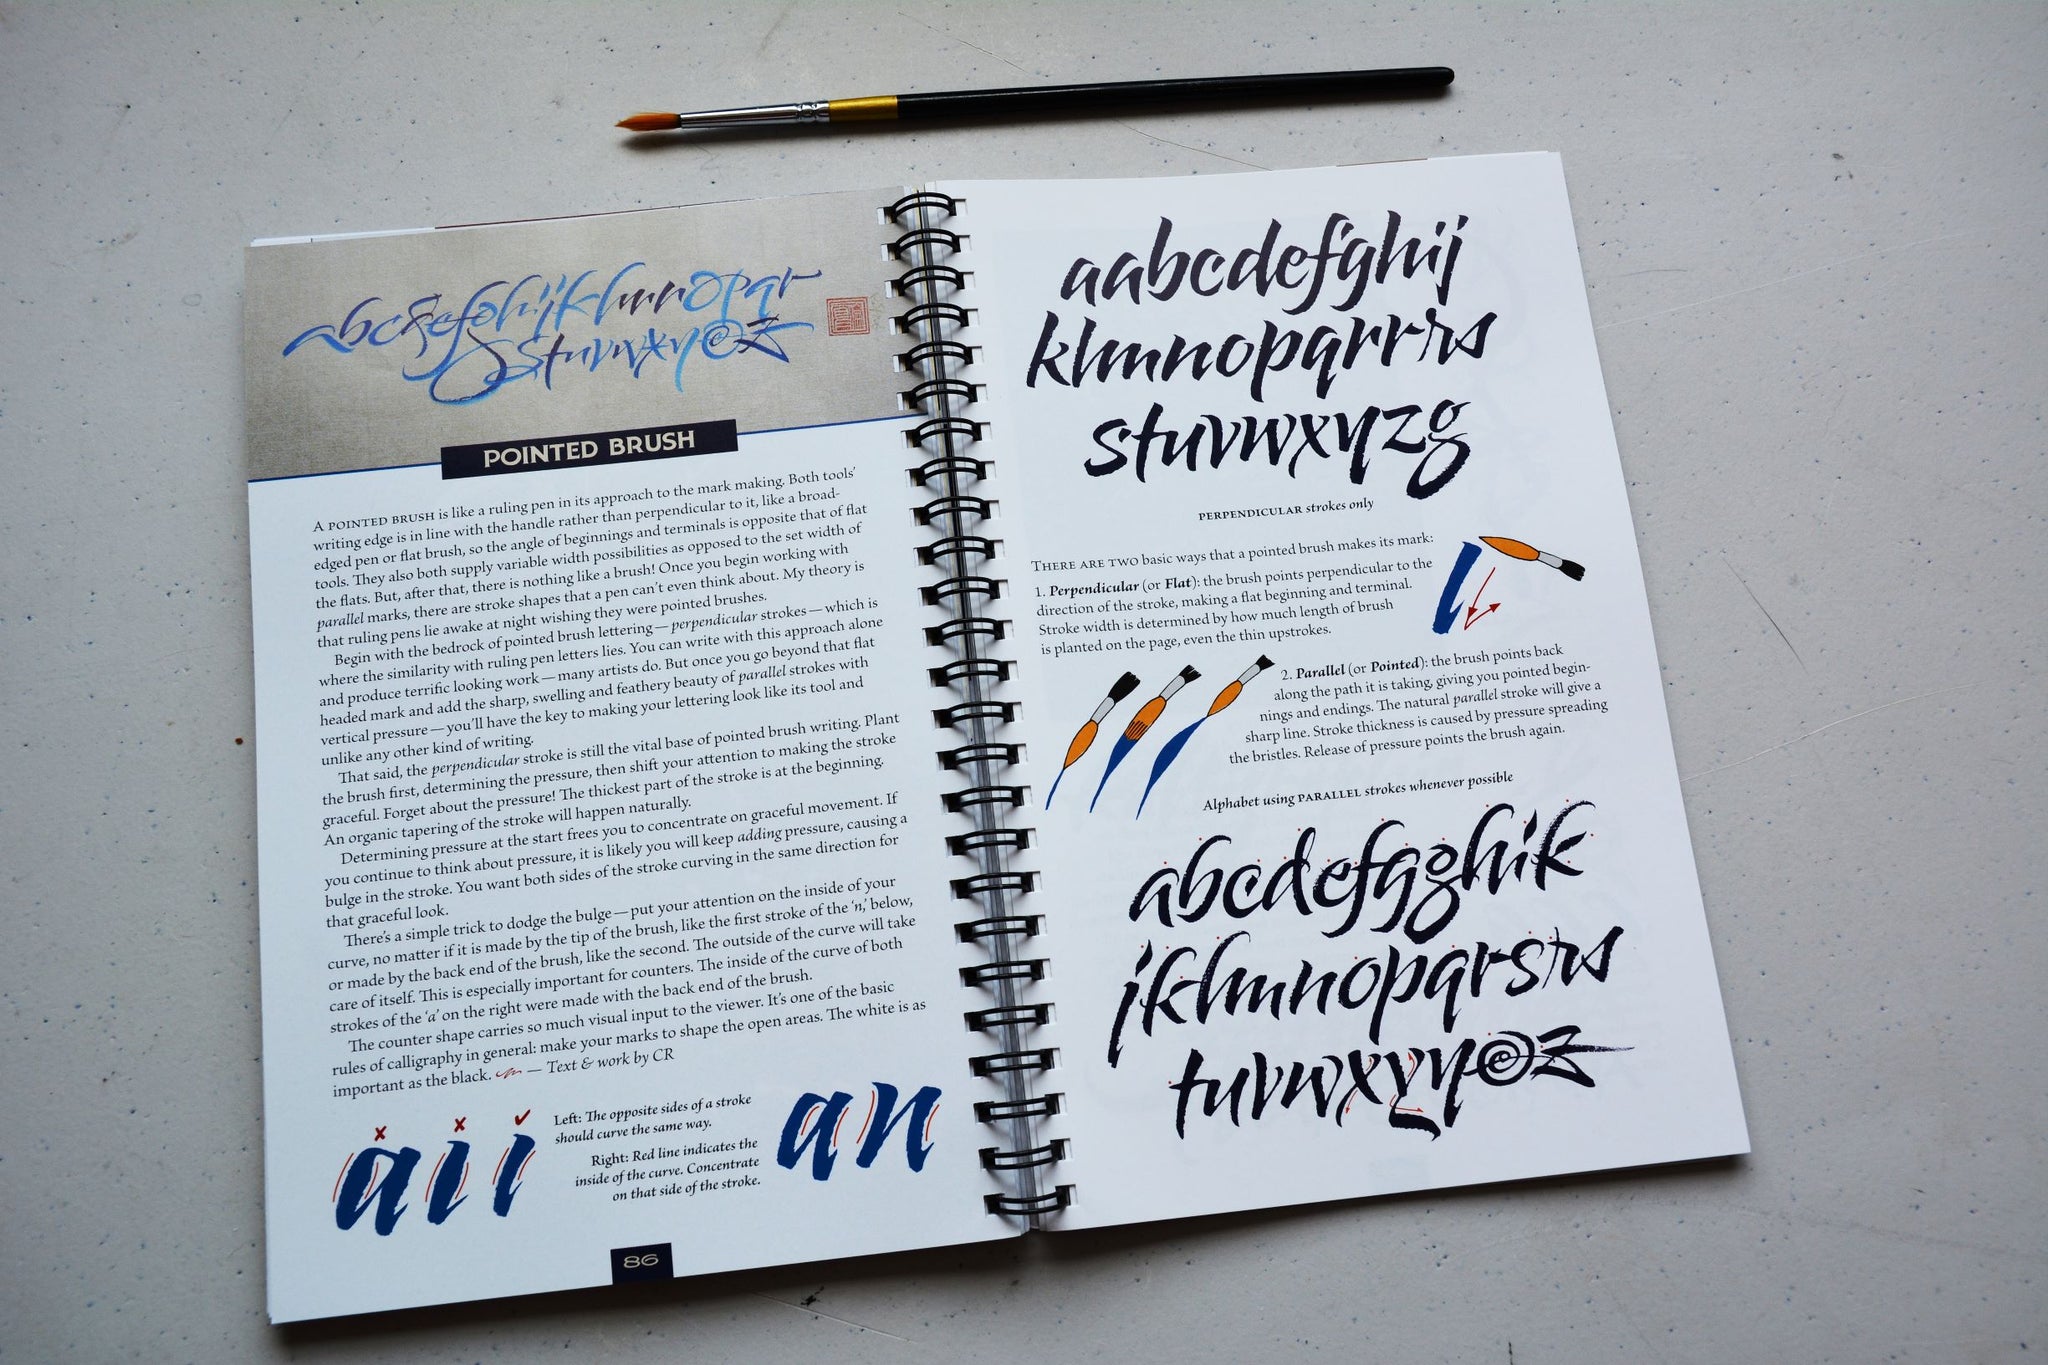 abcdefghijklmnopqr
stuvwxyz
POINTED BRUSH
A POINTED BRUSH is like a ruling pen in its approach to the mark making. Both tools'
writing edge is in line with the handle rather than perpendicular to it, like a broad-
edged pen or flat brush, so the angle of beginnings and terminals is opposite that of flat
tools. They also both supply variable width possibilities as opposed to the set width of
the flats. But, after that, there is nothing like a brush! Once you begin working with
parallel marks, there are stroke shapes that a pen can't even think about. My theory is
that ruling pens lie awake at night wishing they were pointed brushes.
Begin with the bedrock of pointed brush lettering—perpendicular strokes—which is
where the similarity with ruling pen letters lies. You can write with this approach alone
and produce terrific looking work—many artists do. But once you go beyond that flat
headed mark and add the sharp, swelling and feathery beauty of parallel strokes with
vertical pressure—you'll have the key to making your lettering look like its tool and
unlike any other kind of writing.
That said, the perpendicular stroke is still the vital base of pointed brush writing. Plant
the brush first, determining the pressure, then shift your attention to making the stroke
graceful. Forget about the pressure! The thickest part of the stroke is at the beginning.
An organic tapering of the stroke will happen naturally.
Determining pressure at the start frees you to concentrate on graceful movement. If
you continue to think about pressure, it is likely you will keep adding pressure, causing a
bulge in the stroke. You want both sides of the stroke curving in the same direction for
that graceful look.
There's a simple trick to dodge the bulge—put your attention on the inside of your
curve, no matter if it is made by the tip of the brush, like the first stroke of the 'n,' below,
or made by the back end of the brush, like the second. The outside of the curve will take
care of itself. This is especially important for counters. The inside of the curve of both
strokes of the 'a' on the right were made with the back end of the brush.
The counter shape carries so much visual input to the viewer. It's one of the basic
rules of calligraphy in general: make your marks to shape the open areas. The white is as
important as the black. — Text & work by CR
a i i
Left: The opposite sides of a stroke
should curve the same way.
Right: Red line indicates the
inside of the curve. Concentrate
on that side of the stroke.
an
86
aabcdefghij
klmnopqrrrs
stuvwxyzg
PERPENDICULAR strokes only
THERE ARE TWO basic ways that a pointed brush makes its mark:
1. Perpendicular (or Flat): the brush points perpendicular to the
direction of the stroke, making a flat beginning and terminal.
Stroke width is determined by how much length of brush
is planted on the page, even the thin upstrokes.
2. Parallel (or Pointed): the brush points back
along the path it is taking, giving you pointed begin-
nings and endings. The natural parallel stroke will give a
sharp line. Stroke thickness is caused by pressure spreading
the bristles. Release of pressure points the brush again.
Alphabet using PARALLEL strokes whenever possible
abcdefgghik
jklmnopqrsrs
tuvwxyy@z